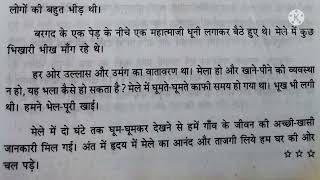 लोगों की बहुत भीड़ थी।
बरगद के एक पेड़ के नीचे एक महात्माजी धूनी लगाकर बैठे हुए थे। मेले में कुछ
भिखारी भीख माँग रहे थे।
हर ओर उल्लास और उमंग का वातावरण था। मेला हो और खाने-पीने की व्यवस्था
न हो, यह भला कैसे हो सकता है? मेले में घूमते-घूमते काफी समय हो गया था। भूख भी लगी
थी। हमने भेल-पूरी खाई।
मेले में दो घंटे तक घूम-घूमकर देखने से हमें गाँव के जीवन की अच्छी-खासी
जानकारी मिल गई। अंत में हृदय में मेले का आनंद और ताजगी लिये हम घर की ओर
चल पड़े।